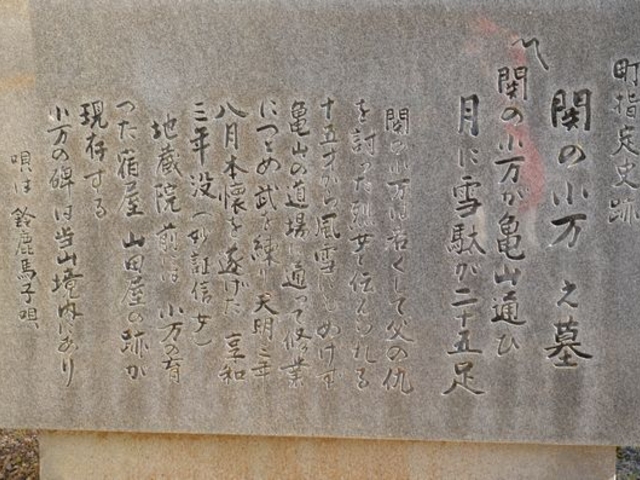 町指定史跡
関の小万之墓
〽関の小万が亀山通ひ
月に雪駄が二十五足
関の小万は若くして父の仇
を討った烈女と伝えられる
十五才から風雪にもめげず
亀山の道場に通って修業
につとめ武を練り天明三年
八月本懐を遂げた 享和
三年没（妙証信女）
地蔵院前には 小万の育
った宿屋 山田屋の跡が
現存する
小万の碑は当山境内にあり
唄は鈴鹿馬子唄